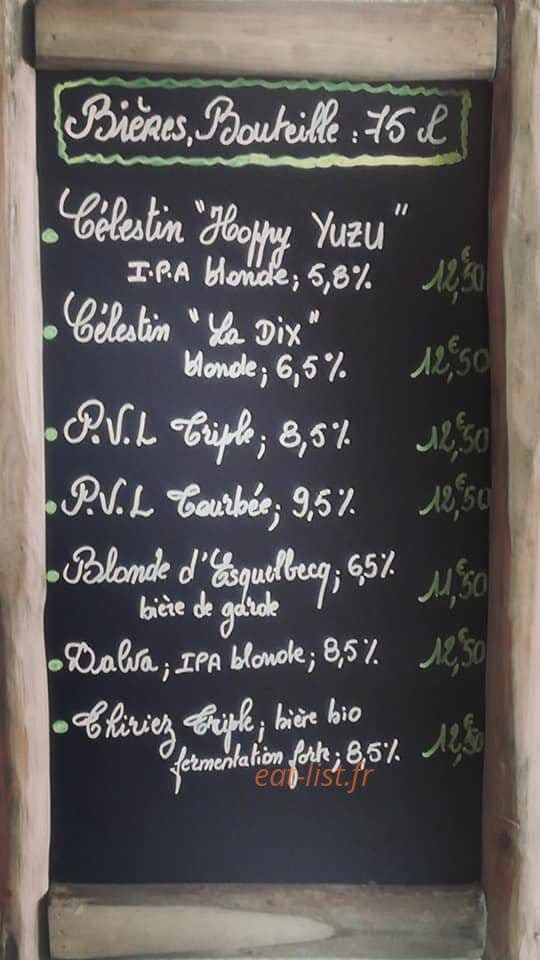 Bières, Bouteille : 75 cl
Célestin "Hoppy Yuzu"
I.P.A blonde; 5,8%
12,€50
Célestin "La Dix"
blonde; 6,5%
12,€50
P.V.L Triple; 8,5%
12,€50
P.V.L Tourbée; 9,5%
12,€50
Blonde d'Esquelbecq; 6,5%
bière de garde
11,€50
Dalva; IPA blonde; 8,5%
12,€50
Thiriez Triple; bière bio
fermentation forte; 8,5%
12,€50
eat-list.fr